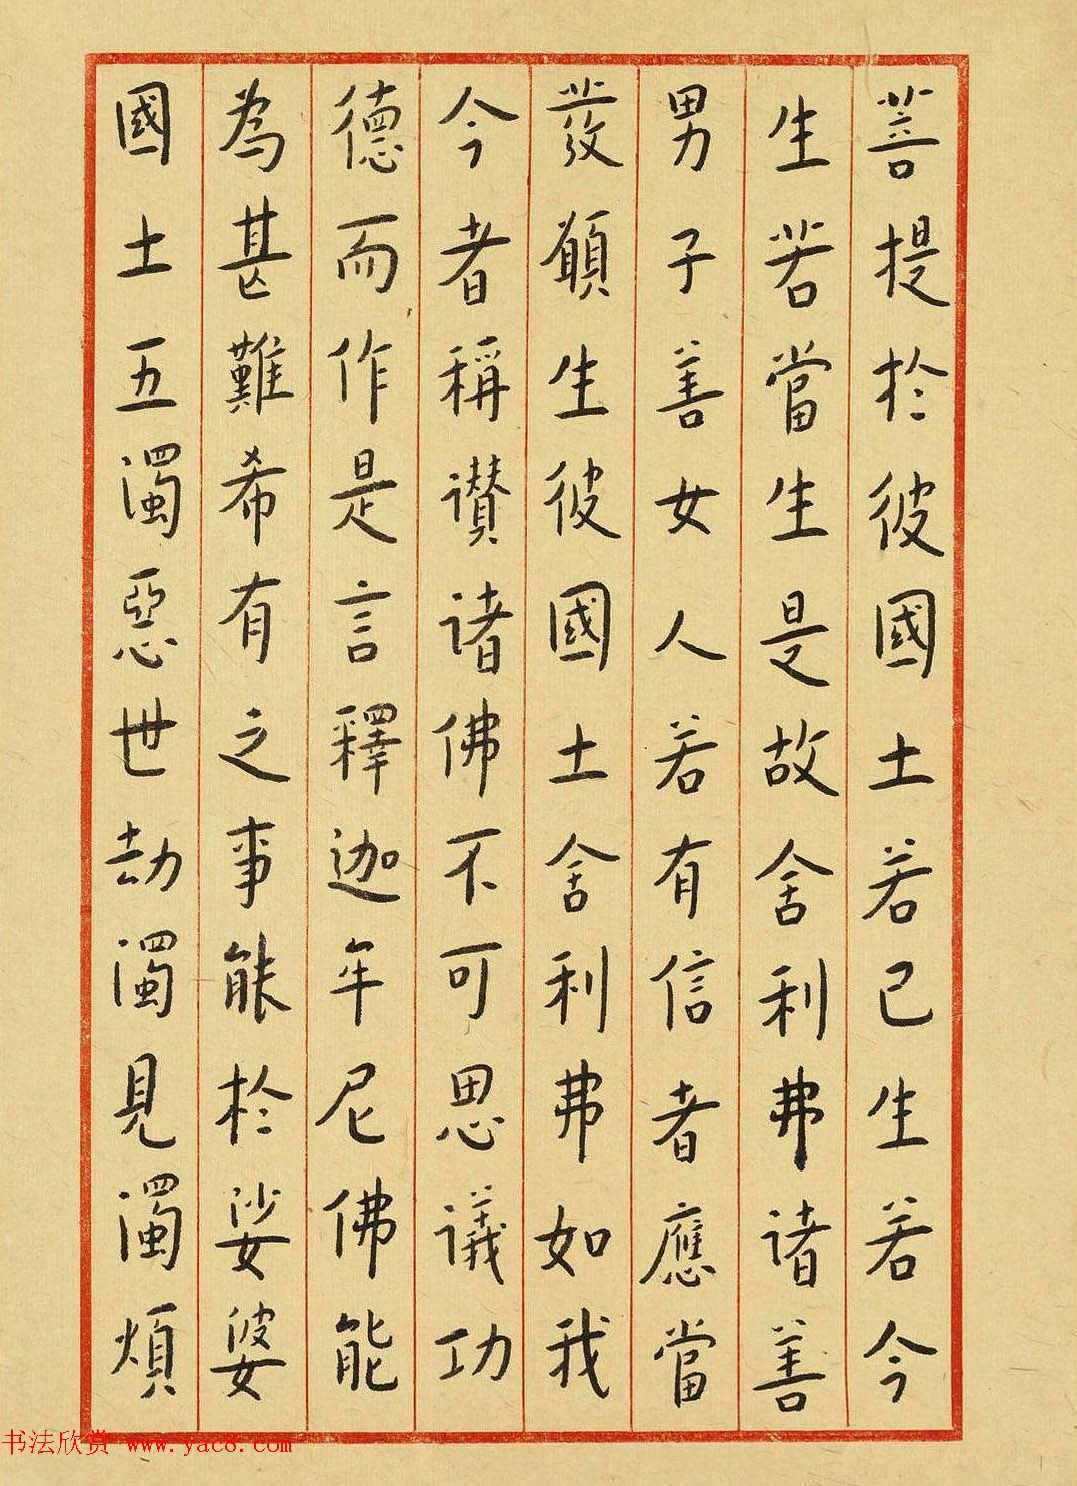 菩提於彼國土若已生若今
生若當生是故舍利弗諸善
男子善女人若有信者應當
發願生彼國土舍利弗如我
今者稱讃諸佛不可思議功
德而作是言釋迦牟尼佛能
為甚難希有之事能於娑婆
國土五濁惡世劫濁見濁煩
书法欣赏 www.yac8.com